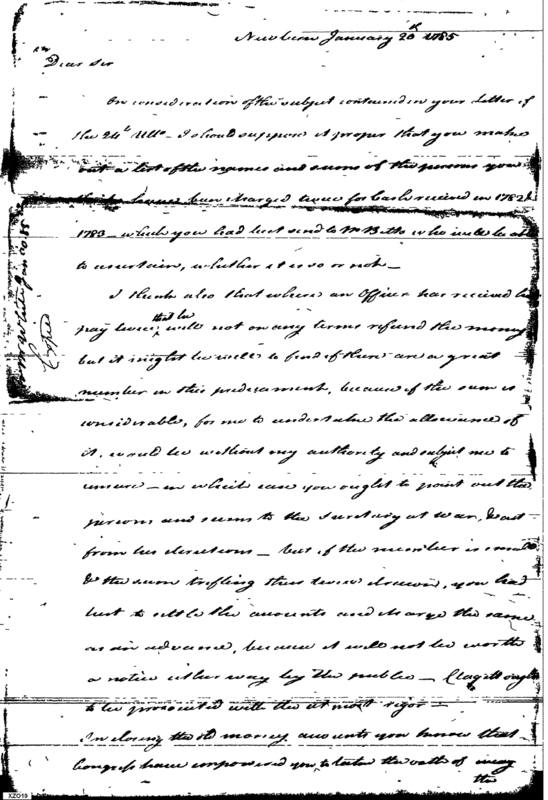 Newbern January 20th 1785
Dear Sir
On consideration of the subject contained in your Letter of
the 24th Ulto - I should suppose it proper that you make
out a list of the names and sums of the persons you
think have been charged twice for Cash received in 1782 &
1783 - which you had best send to Mr Betts who will be able
to ascertain, whether it is so or not -
I think also that where an Officer has received his
pay twice, that he will not on any terms refund the money
but it might be well to find if there are a great
number in this predicament, because if the sum is
considerable, for me to undertake the allowance of
it, would be without my authority and subject me to
censure - in which case you ought to point out the
persons and sums to the Secretary at War, & act
from his directions - but if the number is small
& the sum trifling thus twice drawn, you had
best to settle the accounts and charge the same
as an advance, because it will not be worth
a notice either way by the public - Clagitt ought
to be prosecuted with the utmost rigor -
In closing the old money accounts you know that
Congress have empowered you to take the oath of
the
Mr White Jan 20 85
XZO19